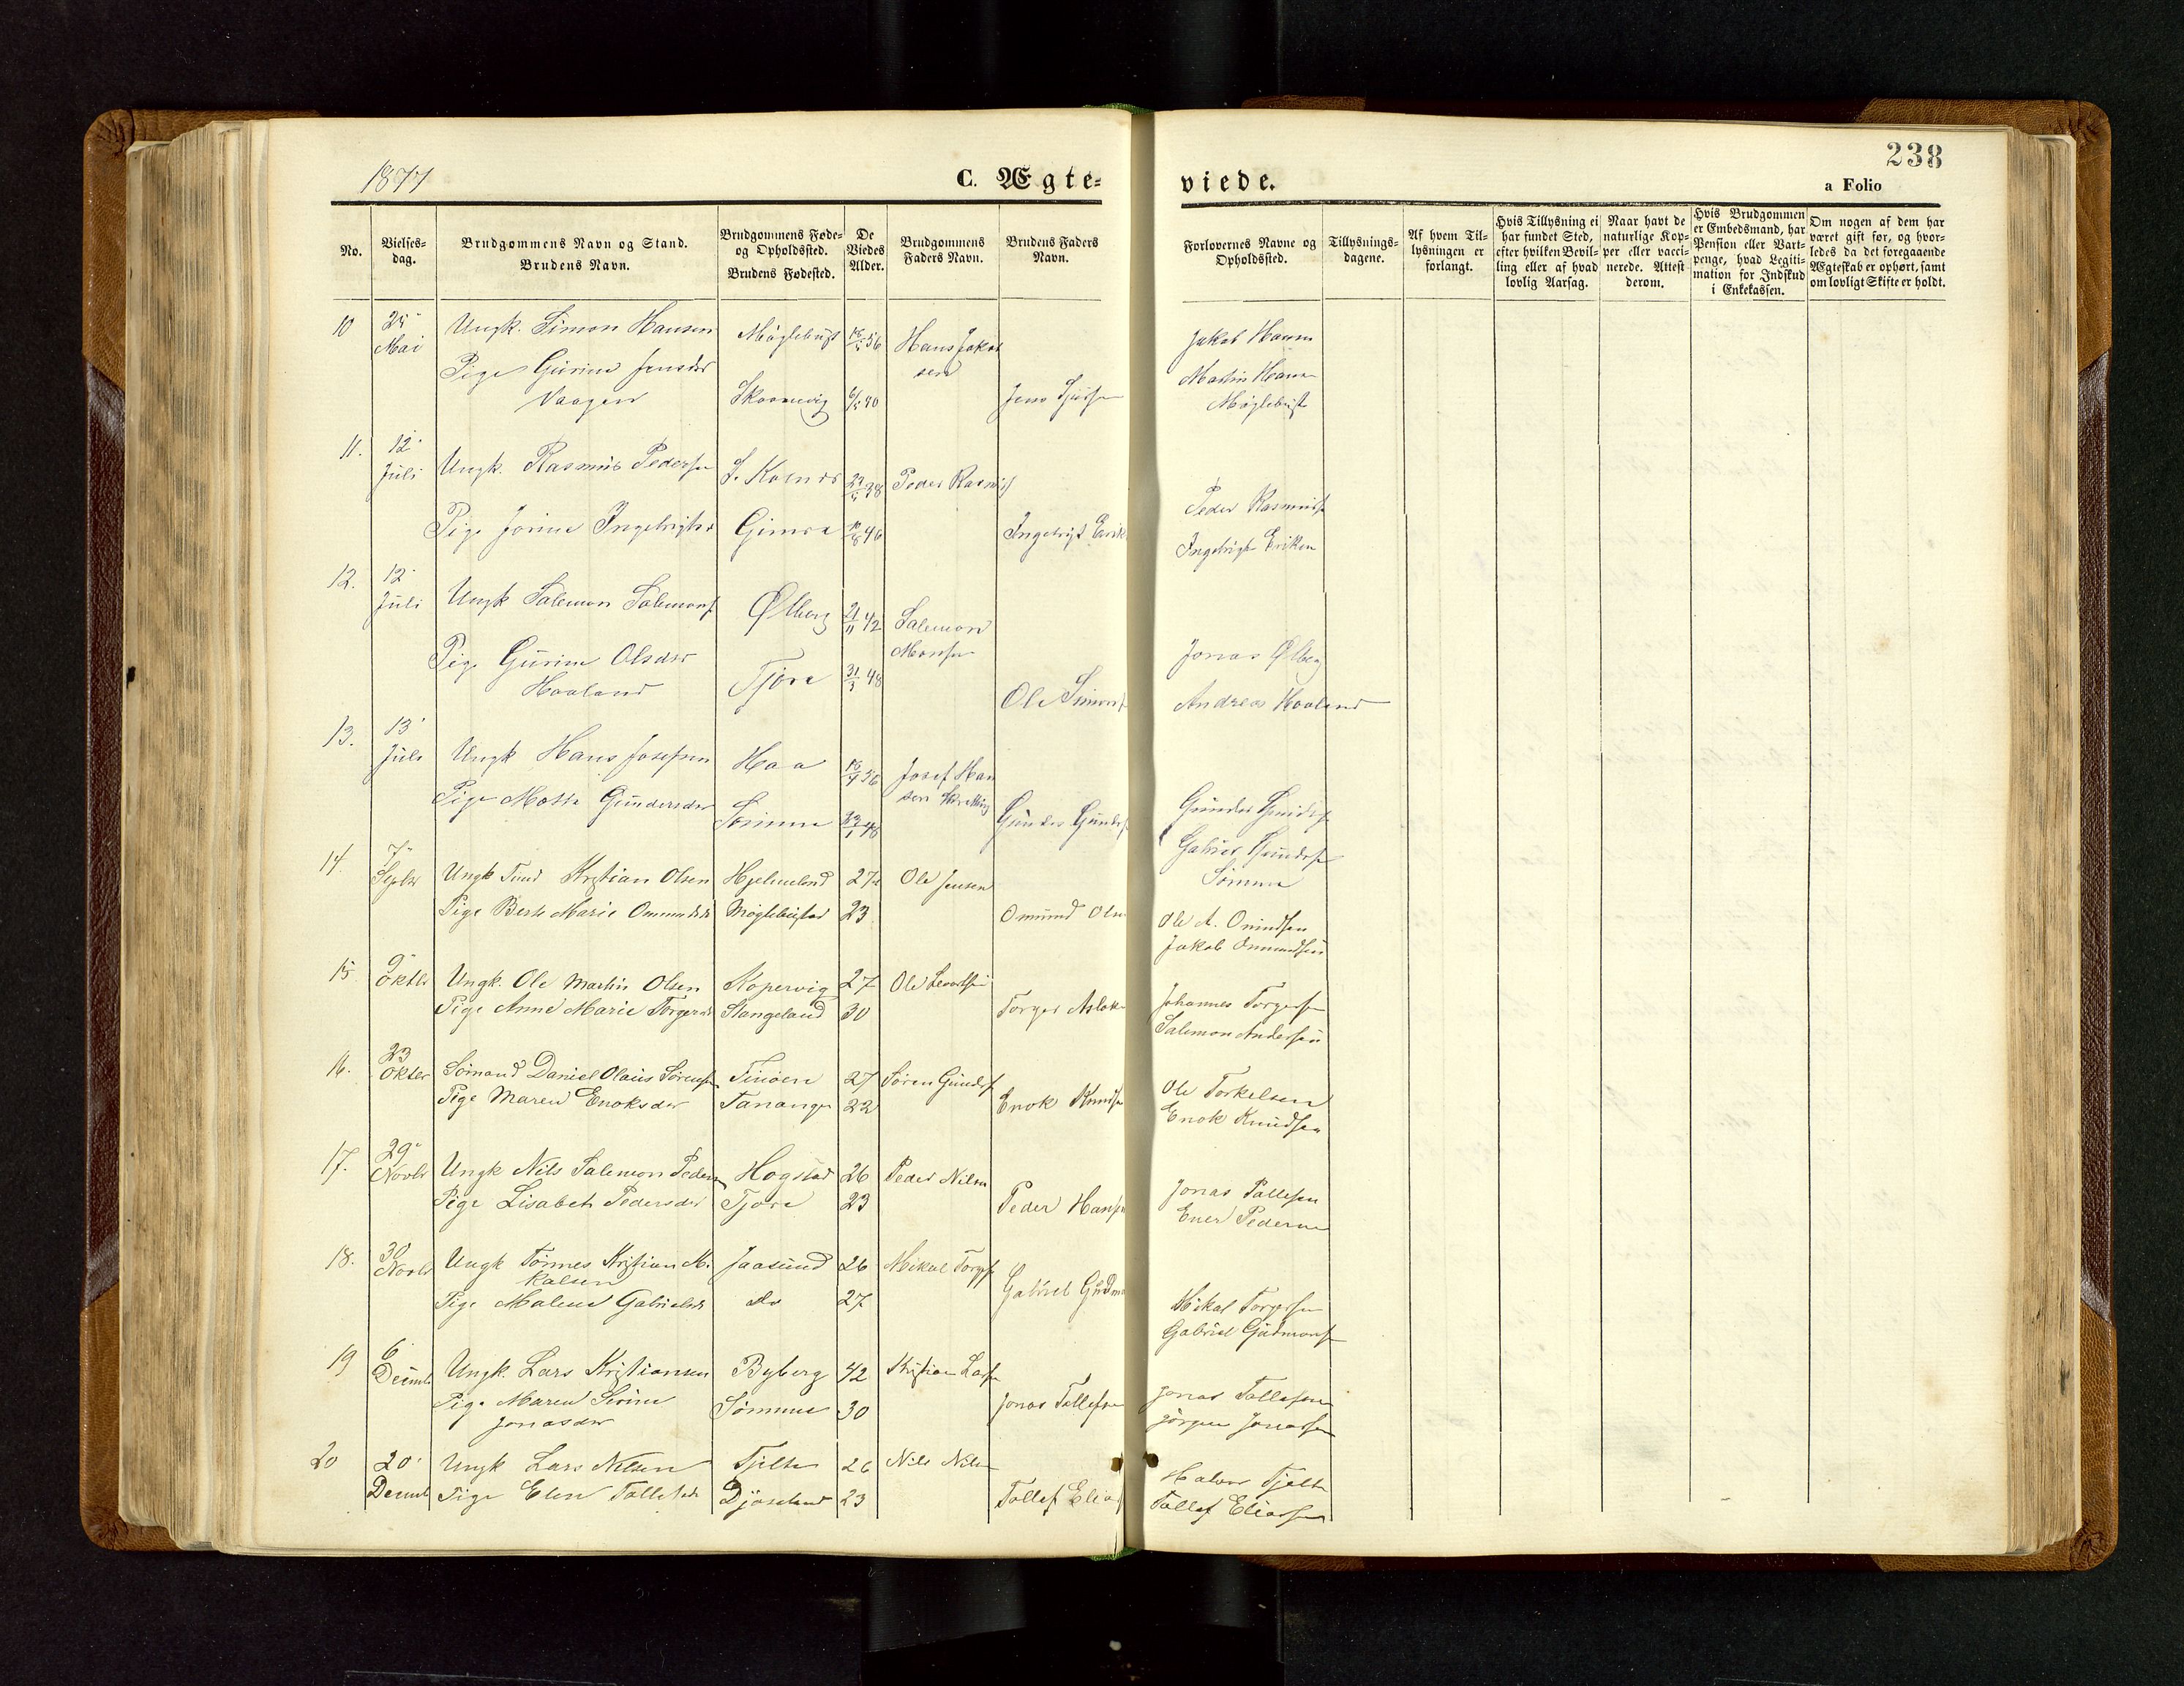 1877
C. Ægte-
viede.
238
a Folio
No.
Vielses-
dag.
Brudgommens Navn og Stand.
Brudens Navn.
Brudgommens Føde-
og Opholdssted.
Brudens Fødested.
De
Viedes
Alder.
Brudgommens
Faders Navn.
Brudens Faders
Navn.
Forlovernes Navne og
Opholdssted.
Tillysnings-
dagene.
Af hvem Til-
lysningen er
forlangt.
Hvis Tillysning ei
har fundet Sted,
efter hvilken Bevil-
ling eller af hvad
lovlig Aarsag.
Naar havt de
naturlige Kop-
per eller vacci-
nerede. Attest
derom.
Hvis Brudgommen
er Embedsmand, har
Pension eller Vart-
penge, hvad Legiti-
mation for Indskud
i Enkekassen.
Om nogen af dem har
været gift før, og hvor-
ledes da det foregaaende
Ægteskab er ophørt, samt
om lovligt Skifte er holdt.
10 Mai Ungk. Simon Hansen 56 Hans Jakob
sen
Jakob Hansen
Pige Gurine Jensdr
Vaagen Skaanevig 40 Jens
Martin Hansen
11. 12 Juli Ungk. Rasmus Pedersen 38 Peder Rasmus
Peder Rasmuss
Pige Jorine Ingebrigtsd Gimra 46 Ingebrigt Erik
Ingebrigt Eriksen
12. 12 Juli Ungk Salemon Salemons Ølberg 21/11 42 Salemon
Monsen
Jonas Ølberg
Pige Gurine Olsdr
Haaland Tjøre 31/3 48 Ole Simons
Andreas Haaland
13. 13 Juli Ungk Hans Josefsen Haa 56 Josef Han
sen
Gunder Gunders
Pige Gundersdr Sømme 48 Gunder Gunders
Gabriel Gunders
Sømme
14. 7 Septbr Ungk Kristian Olsen Hjelmeland 27 Ole Jensen
Pige Berte Marie Omundsdr 23 Omund Olsen
Ole A. Omundsen
Jakob Ommundsen
15 9 Oktbr Ungk. Ole Martin Olsen Kopervig 27 Ole
Pige Anne Marie Torgersdr Stangeland 30 Torger Aslak
Johannes Torgersen
Salemon Andersen
16. 23 Oktbr Sømand Daniel Olaus Sørensen 27 Søren Gunders
Pige Maren Enoksdr Tananger 22 Enok Knudsen
Ole Torkelsen
Enok Knudsen
17. 29 Novbr Ungk Nils Salemon Pedersen Hogstad 26 Peder Nilsen
Pige Lisabet Pedersdr Tjøre 23 Peder Hansen
Jonas Pallesen
Ener Pedersen
18. 30 Novbr Ungk Tønnes Kristian Mi
kalsen Jaasund 26 Mikal Torgs
Pige Malene Gabrielsdr do 27 Gabriel Gudm
Mikal Torgersen
Gabriel Gudmunds
19 6 Decmb Ungk. Lars Kristiansen Byberg 42 Kristian Larsen
Pige Maren Serine
Jonasdr Sømme 30 Jonas Tollefsen
Jonas Tollefsen
Jørgen Jonassen
20 20 Decmb Ungk Lars Nilsen Tjelta 26 Nils Nilsen
Pige Elen Tollefsdr 23 Tollef Elias
Tjelta
Tollef Eliassen